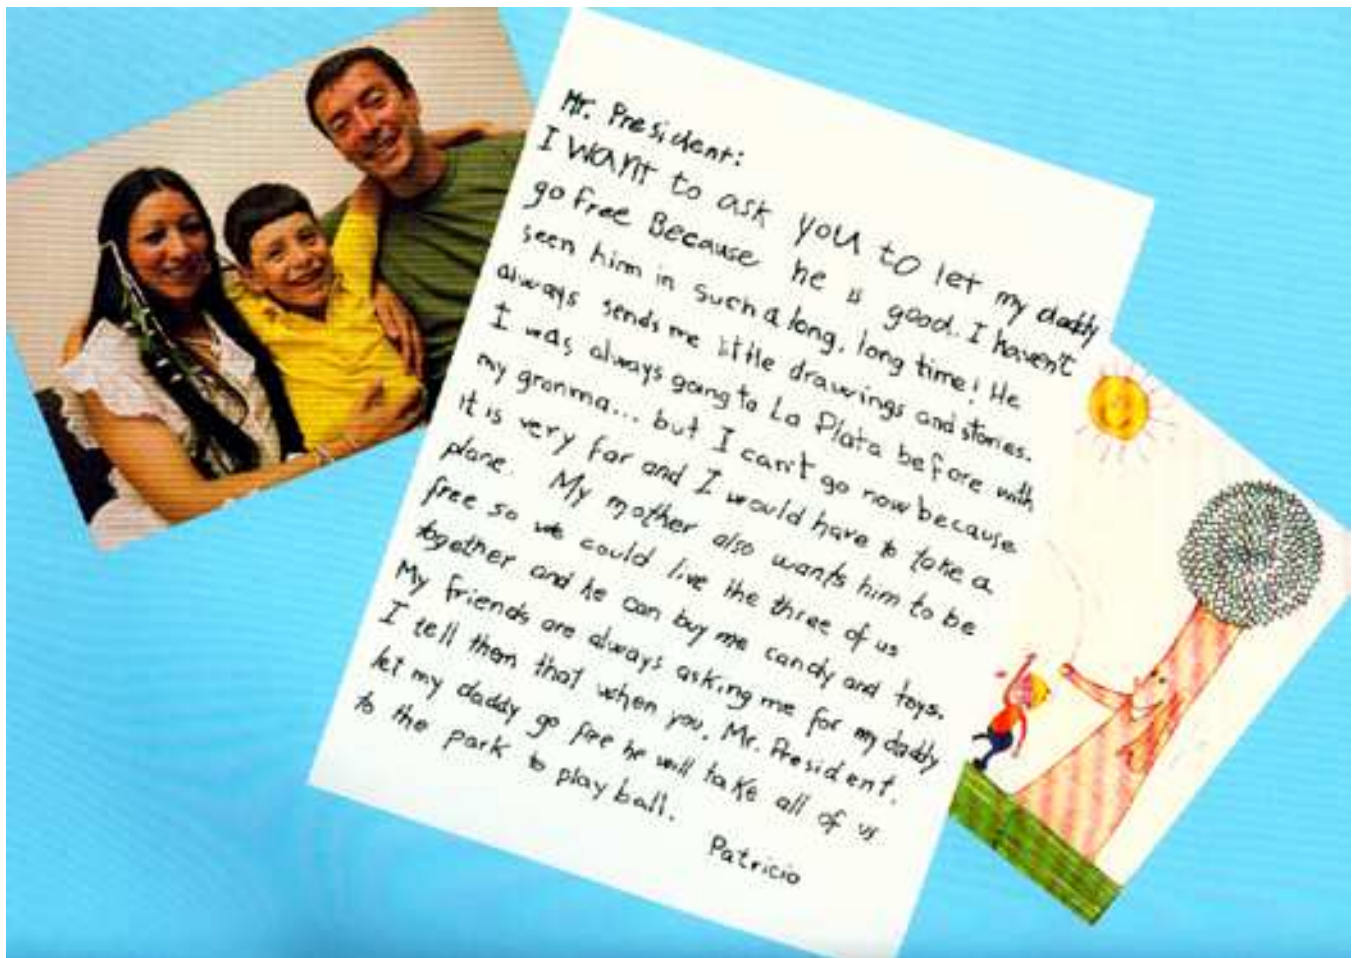 Mr. President:
I want to ask you to let my daddy
go free Because he is good. I haven't
seen him in such a long, long time! He
always sends me little drawings and stories.
I was always going to La Plata before with
my granma... but I can't go now because
it is very far and I would have to take a
plane. My mother also wants him to be
free so we could live the three of us
together and he can buy me candy and toys.
My friends are always asking me for my daddy
I tell them that when you, Mr. President.
let my daddy go free he will take all of us
to the park to play ball.
Patricio